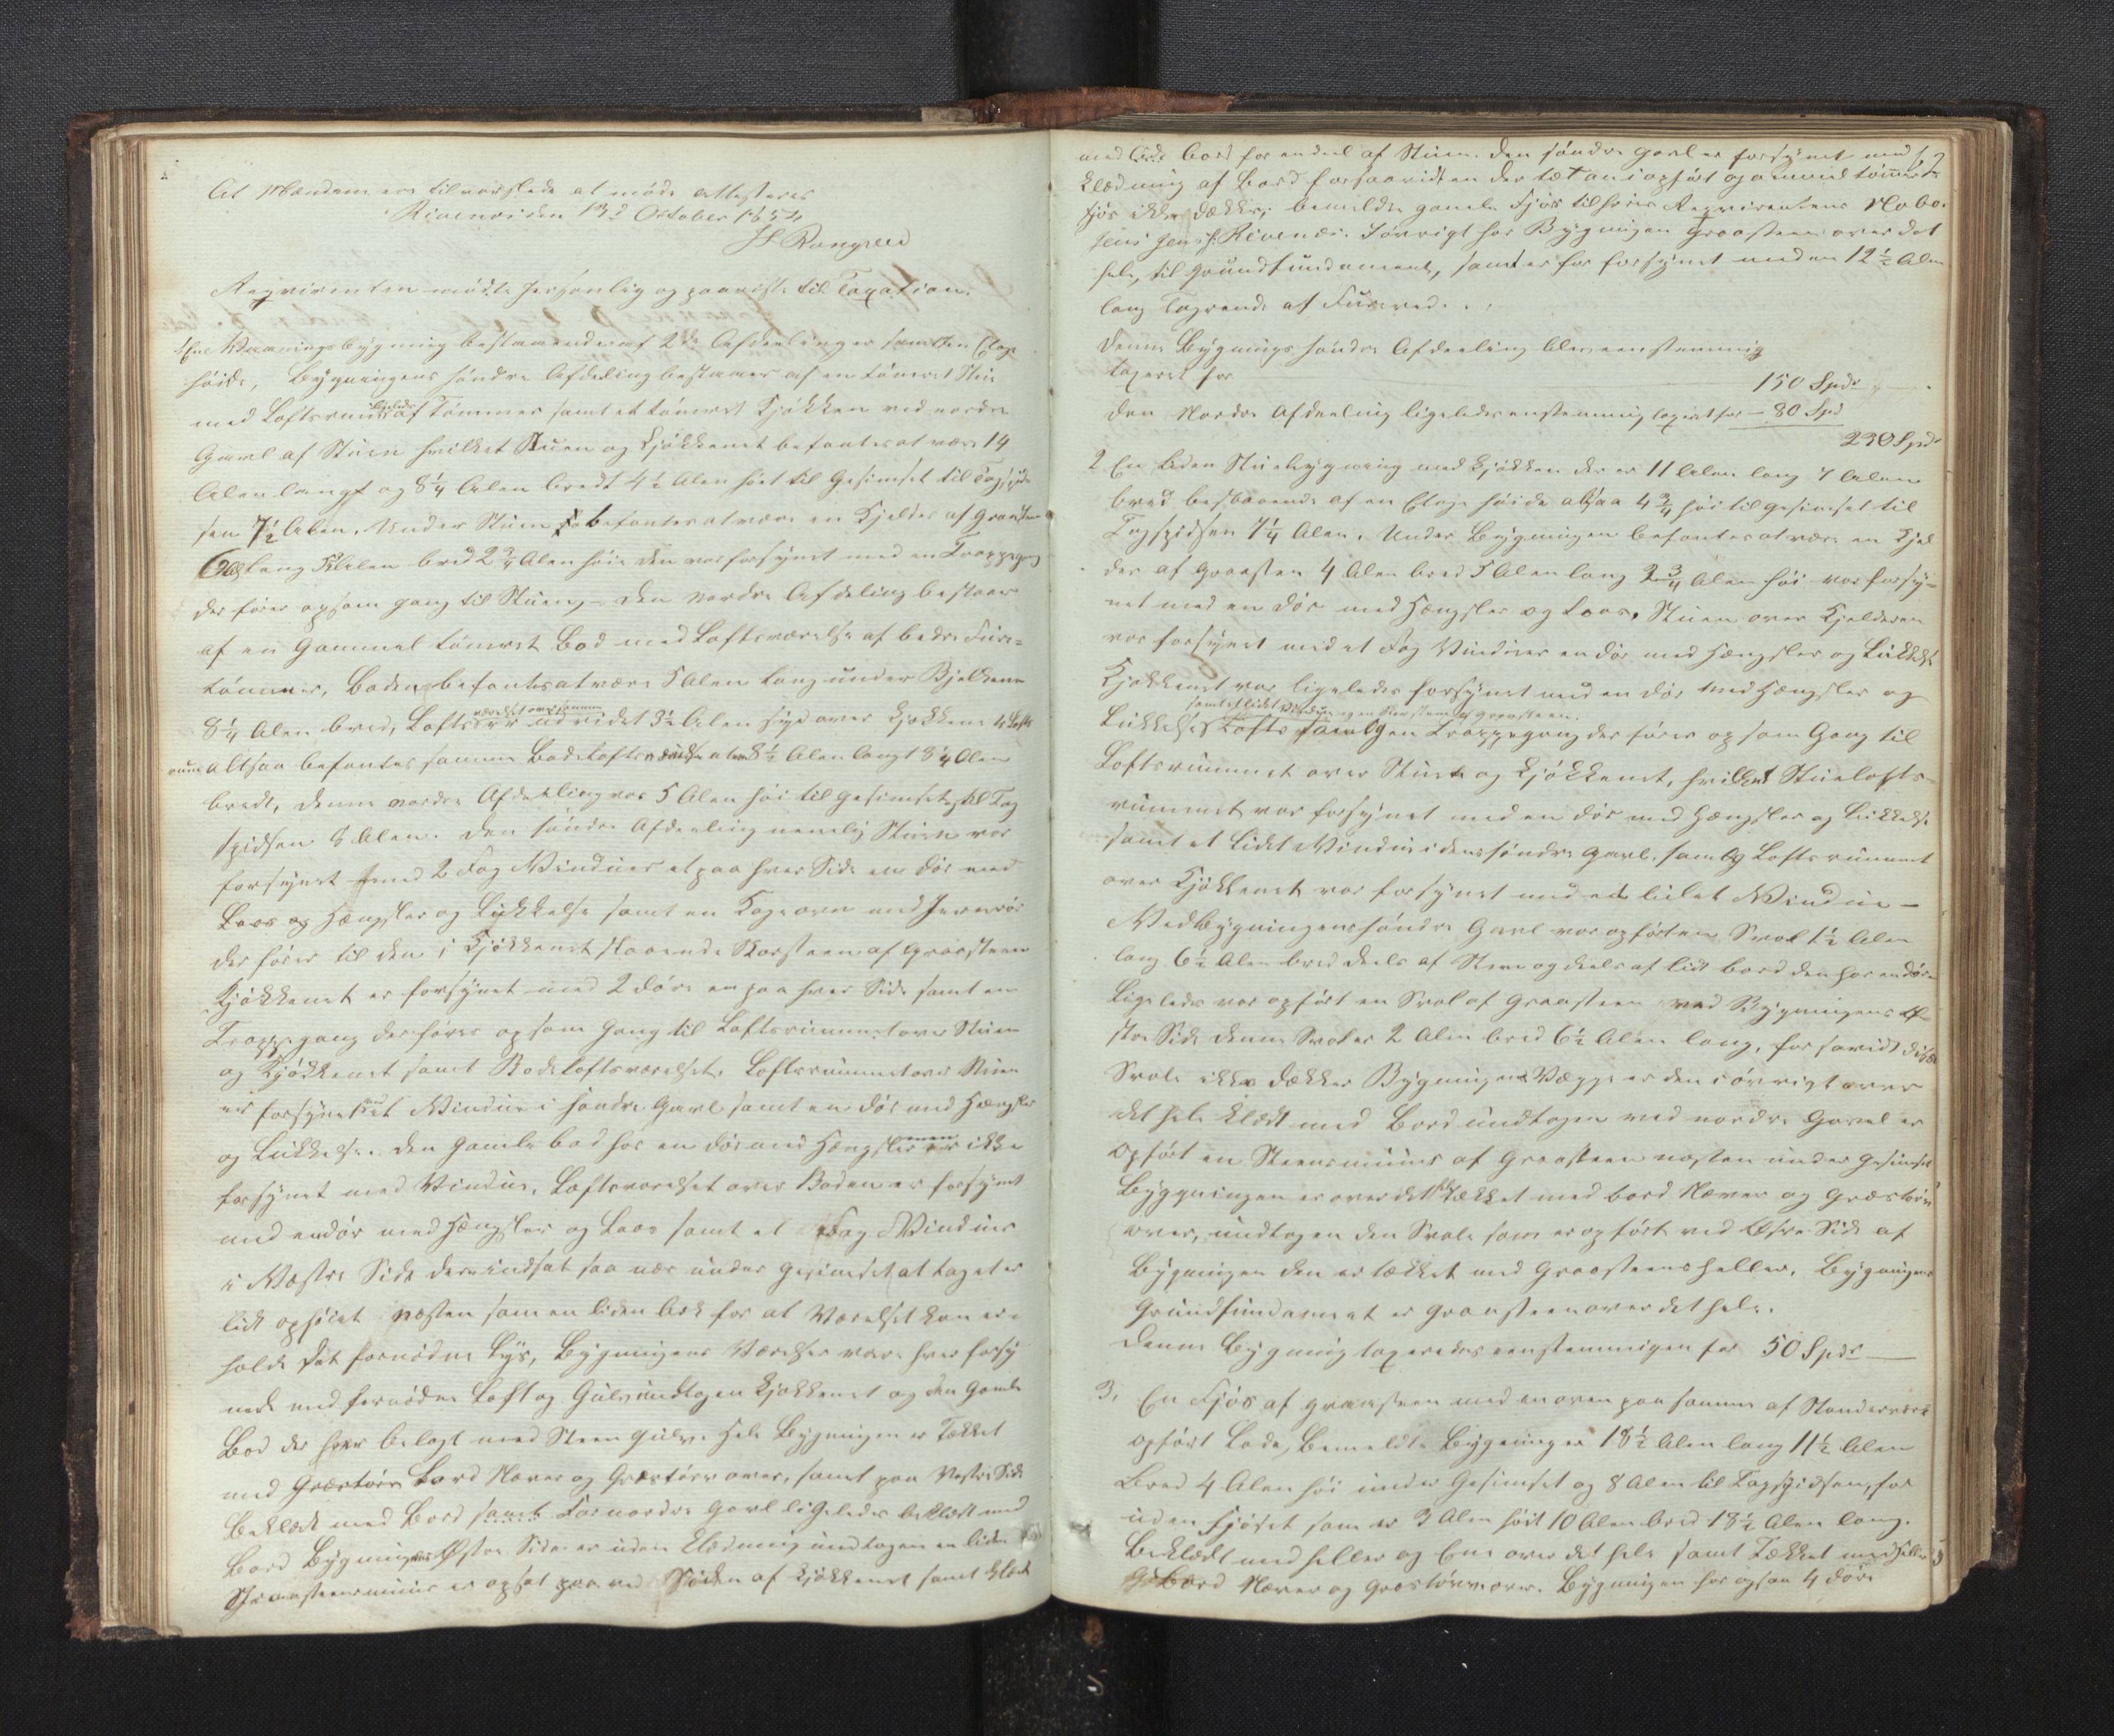 At Mændene ere tilvarslede at møde attesteres
Rivenæs den 13de October 1854
H Rongved
Reqvirenten mødte personlig og paaviste til Taxation.
1 Een Vaaningsbygning bestaaende af 2de Afdeelinger samt en Etage
høide, Bygningens søndre Afdeling bestaaer af en tømret Stue
med Loftsrum ligeledes af Tømmer samt et tømret Kjøkken ved nordre
Gavl af Stuen hvilket Stuen og Kjøkkenet befantes at være 14
Alen langt og 8¼ Alen bredt 4½ Alen høit til Gesimset til Tagspid-
sen 7½ Alen. Under Stuen befantes at være en Kjelder af Graasteen
6 Al lang 5 Alen bred 2¾ Alen høi den var forsynet med en Trappegang
der fører op som gang til Stuen, – Den nordre Afdeling bestaar
af en Gammel tømret Bod med Loftsværelse af bedre Furu-
tømmer, Boden befantes at være 5 Alen lang under Bjelkerne
8¼ Alen bred, Lofts værelset over samme udvidet 3½ Alen syd over Kjøkkenets Lofts
rum altsaa befantes samme Bodeloftsværelse at være 8½ Alen langt 8¼ Alen
bredt, denne nordre Afdeeling var 5 Alen høi til Gesimset, til Tag
spidsen 8 Alen. Den søndre Afdeeling nemlig Stuen var
forsynet med 2 Fag Vinduer et paa hver Side en Dør med
Laas og Hængsler og Lukkelse samt en Kogeovn med Jernrør
der fører til den i Kjøkkenet staaende Skorsteen af Graasteen
Kjøkkenet er forsynet med 2 Døre en paa hver Side samt en
Trappegang der fører op som Gang til Loftsrummet over Stuen
og Kjøkkenet samt Bodeloftsværelset. Loftsrummet over Stuen
er forsynet med et Vindue i søndre Gavl samt en Dør med Hængsler
og Lukkelse. Den gamle bod har en Dør med Hængsler men er ikke
forsynet med Vindue, Loftsværelset over Boden er forsynet
med en Dør med Hængsler og Laas samt et Fag Vinduer
i Vestre Side der er indsat saa nær under Gesimset at taget er
lidt ophøiet næsten som en liden Ark for at Værelset kan er-
holde det fornødne Lys, Bygningens Værelser vare hver forsy
nede med fornøden Loft og Gulv undtagen Kjøkkenet og den Gamle
Bod der hver belagt med Steen Gulv. Hele Bygningen er Tækket
med Græstørv Bord Næver og Græstørv over, samt paa Vestre Side
Beklædt med Bord samt For nordre Gavl ligeledes beklædt med
Bord Bygningens Østre Side er uden Klædning undtagen en liden
Graasteensmuur er opsat paa ved Siden af Kjøkkenet samt klædt
med lidt bord for endeel af Stuen. Den søndre Gavl er forsynet med
Klædning af Bord forsaavidt en der tæt ans opført og gammel tømret
Fjøs ikke dækker; bemeldte gamle Fjøs tilhører Reqvirentens Nabo
Jens Jens: Rivenæs. Iøvrigt har Bygningen Graasteen over det
hele, til Grundfundament, samt er for forsynet med en 12½ Alen
lang Tagrende af Furuved.
Denne Bygnings søndre Afdeeling blev eenstemmig
taxeret for 150 Spdr
Den Nordre Afdeeling ligeledes enstemmig taxeret for – 80 Spd
230 Spdr
2 En liden Stuebygning med Kjøkken der er 11 Alen lang 7 Alen
bred bestaaende af en Etage høide altsaa 4¾ høi til Gesimset til
Tagspidsen 7¼ Alen. Under Bygningen befantes at være en Kjel
der af Graasten 4 Alen bred 5 Alen lang 2¾ Alen høi var forsy-
net med en Dør med Hængsler og Laas. Stuen over Kjelderen
var forsynet med et Fag Vinduer en Dør med Hængsler og Lukkelse
Kjøkkenet var ligeledes forsynet med en Dør med Hængsler og
samt et lidet Vindue og en Skorsteen af Graasteen.
Lukkelse Lofts samt en Trappegang der fører op som Gang til
Loftsrummet over Stuen og Kjøkkenet, hvilket Stuelofts-
rummet var forsynet med en Dør med Hængsler og Lukkelse
samt et lidet Vindue i dens søndre Gavl, samt Loftsrummet
over Kjøkkenet var forsynet med et lidet Vindue –
Ved Bygningens søndre Gavl var opført en Sval 1½ Alen
lang 6½ Alen bred deels af Steen og deels af lidt bord den har en dør
Ligeledes var opført en Sval af Graasteen ved Bygningens Ø-
stre Side denne Sval er 2 Alen bred 6½ Alen lang, forsavidt disse
Svale ikke dækker Bygningens Vægge er den iøvrigt over
det hele klædt med Bord undtagen ved nordre Gavel er
opført en Steensmuur af Graasteen næsten under Gesimset
Bygningen er over det hele tækket med bord Næver og Græstørv
over, undtagen den Sval som er opført ved Østre Side af
Bygningen den er tækket med Graasteensheller. Bygningens
Grundfundament er Graasteen over det hele.
Denne Bygning taxeredes eenstemmigen for 50 Spdr –
3, En Fjøs af Graasteen med en oven paa samme af Stenderværk
opført Lade, Bemeldte Bygning er 18½ Alen lang 11½ Alen
Bred 4 Alen høi under Gesimset og 8 Alen til Tagspidsen, for
uden Fjøset som er 3 Alen høit 10 Alen bred 18½ Alen lang.
Beklædt med heller og Ene over det hele samt Tækket med heller
Bord Næver og Græstørv over. Bygningen har ogsaa 4 Døre